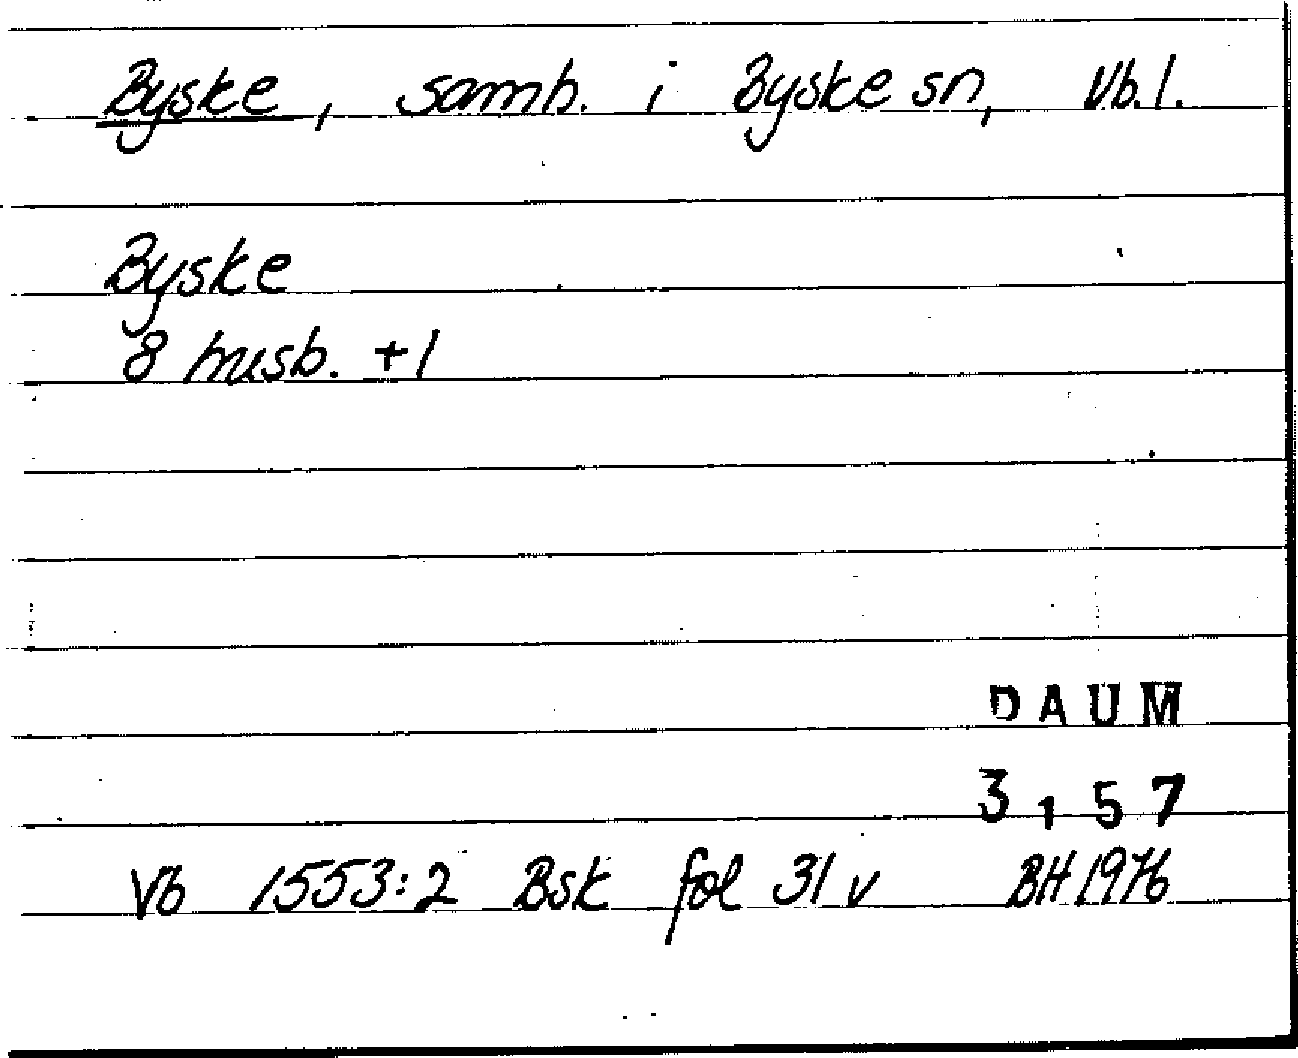 Byske, samh. i Byske sn, Vb. l.
Byske
8 husb. +1
DAUM
3157
Vb 1553:2 Bsk fol 31 v BH 1976